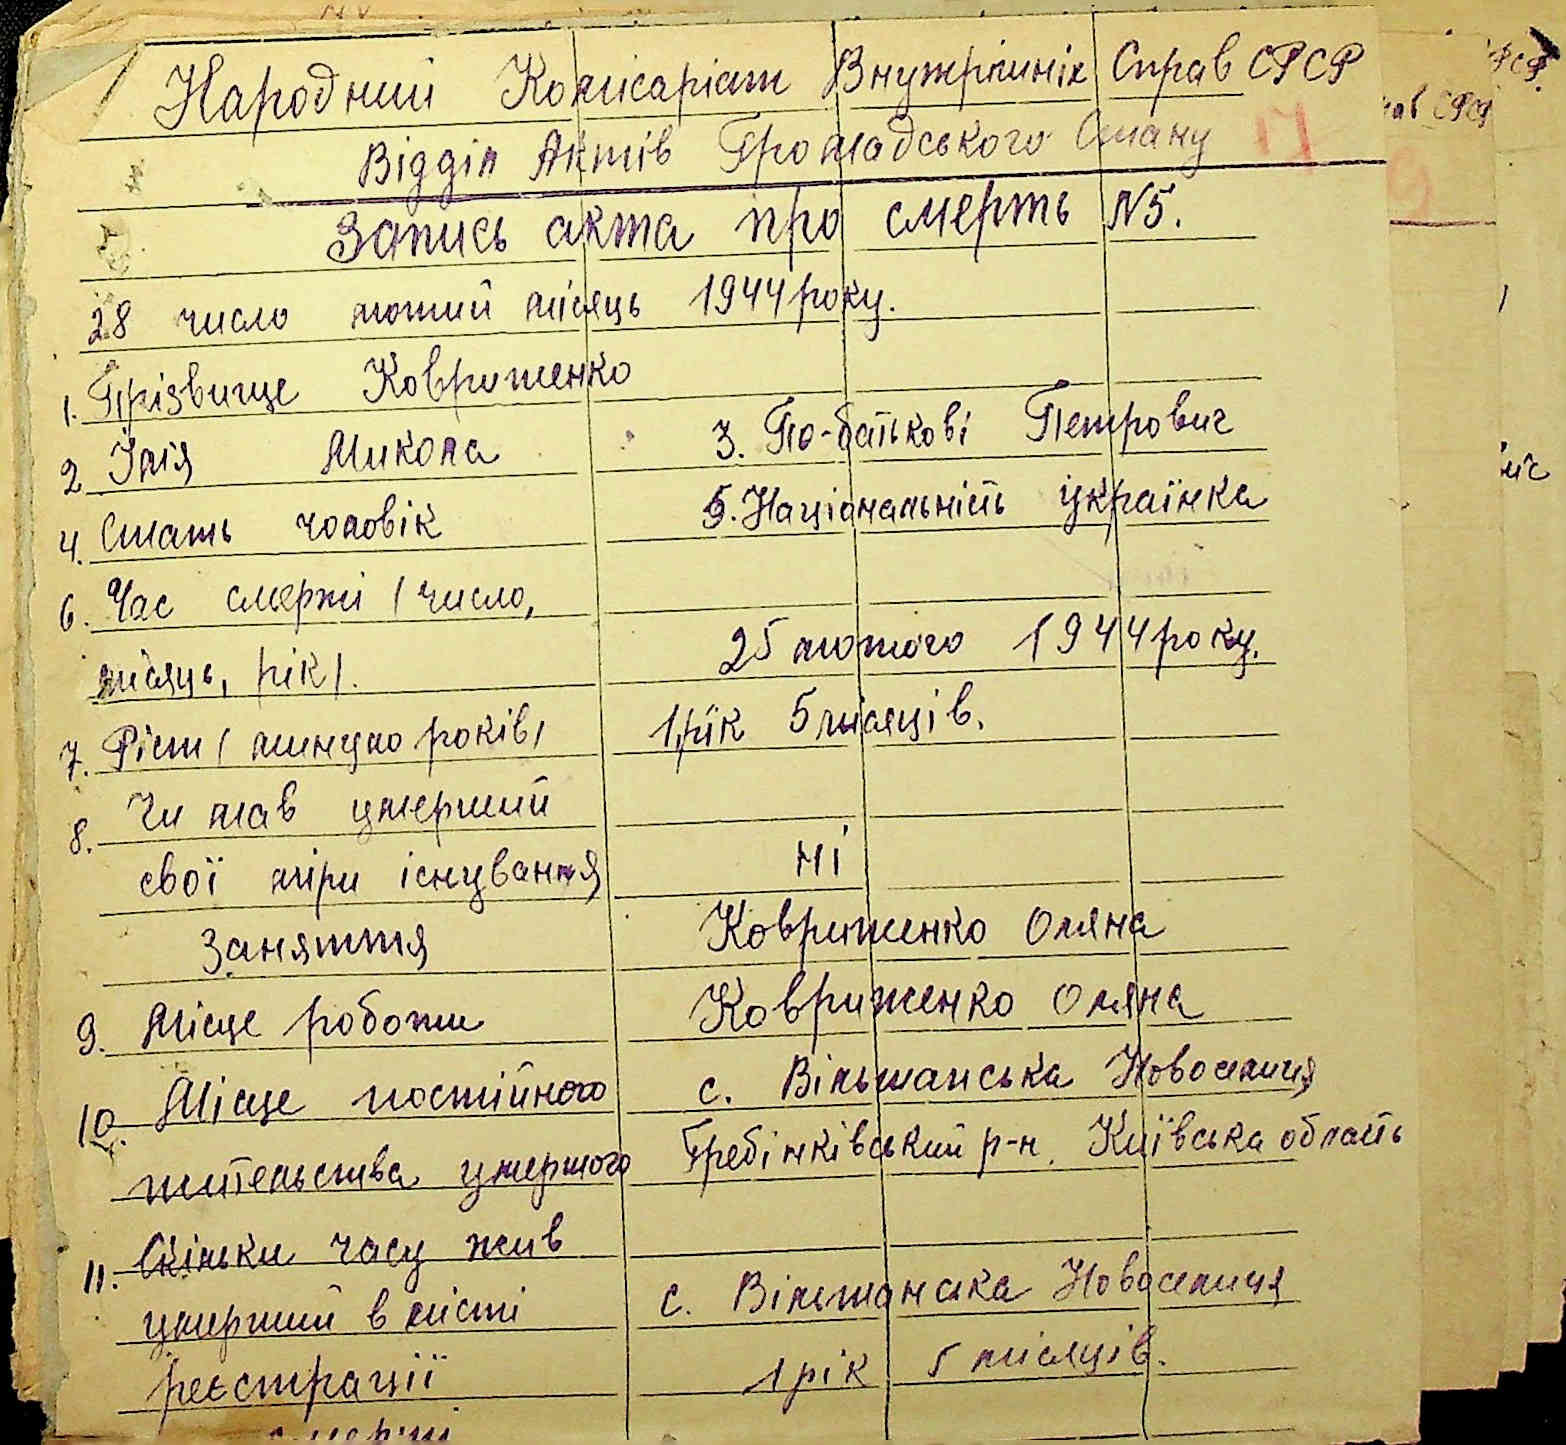 Народний Комісаріат Внутрішніх Справ СРСР
Відділ Актів Громадського Стану
Запись акта про смерть №5.
28 число лютий місяць 1944 року.
1. Прізвище Ковриженко
2. Імія Микола 3. По-батькові Петрович
4. Стать чоловік 5. Національність українка
6. Час смерті (число,
місяць, рік). 25 лютого 1944 року.
7. Ріст (минуло років) 1 рік 5 місяців.
8. Чи мав умерший
свої міри існування ні
Заняття Ковриженко Оляна
9. Місце роботи Ковриженко Оляна
10. Місце постійного с. Вільшанська Новоселиця
жительства умершого Гребінківський р-н. Київська область
11. Скільки часу жив
умерший в місті с. Вільшанська Новоселиця
реєстрації 1 рік 5 місяців.
смерті